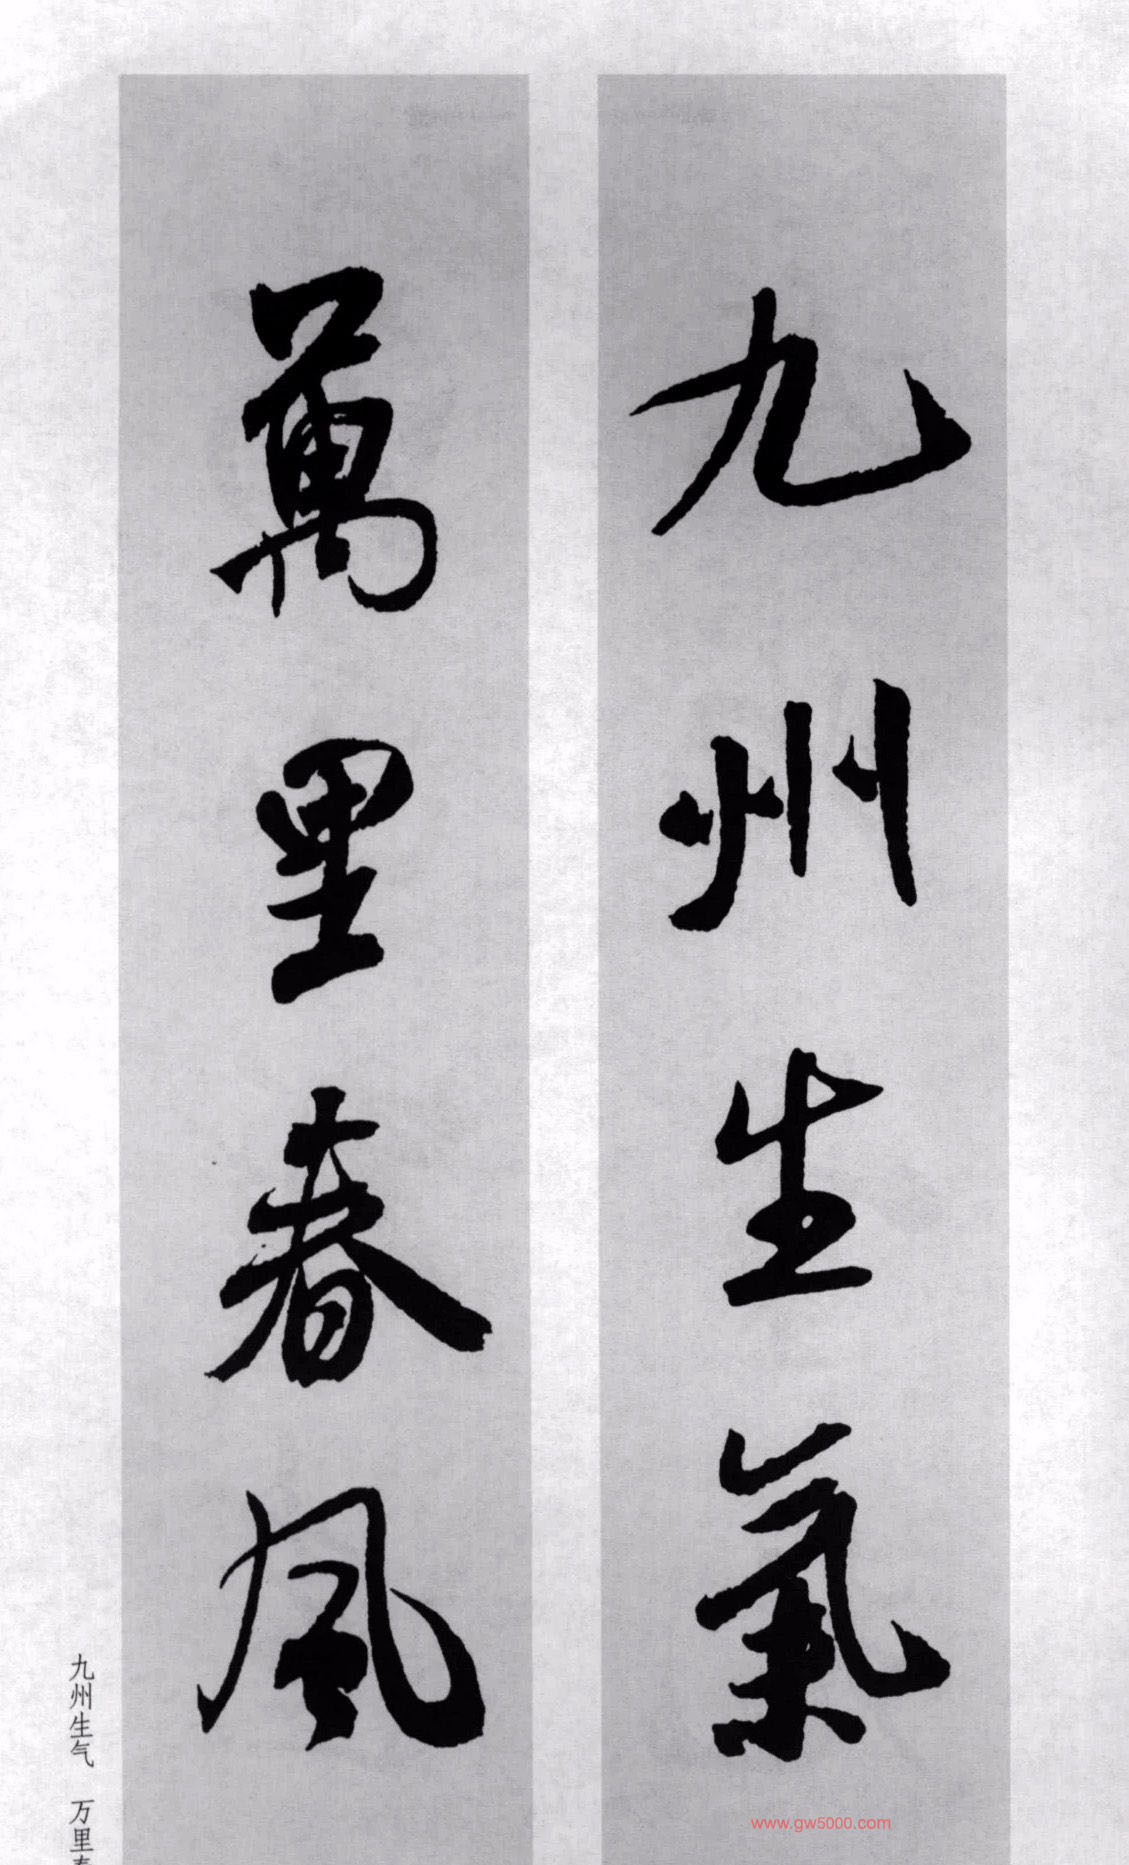 九州生氣
萬里春風
九州生气 万里春
www.gw5000.com